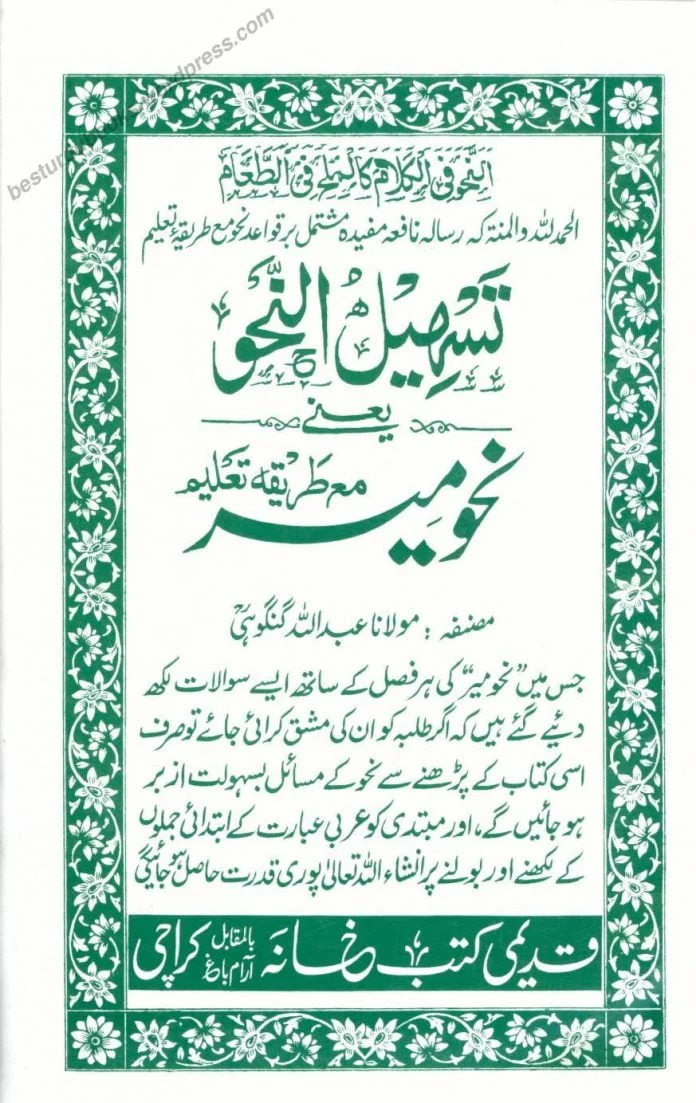 النَّحْوُ فِی الْکَلَامِ کَالْمِلْحِ فِی الطَّعَامِ
الحمد للہ والمنۃ کہ رسالہ نافعہ مفیدہ مشتمل بر قواعد نحو مع طریقۂ تعلیم
تَسْہِیْلُ النَّحْو
یعنے
نحو میر
مع طریقہ تعلیم
مصنفہ : مولانا عبد اللہ گنگوہیؒ
جس میں "نحو میر" کی ہر فصل کے ساتھ ایسے سوالات لکھ
دئیے گئے ہیں کہ اگر طلبہ کو ان کی مشق کرائی جائے تو صرف
اسی کتاب کے پڑھنے سے نحو کے مسائل بسہولت از بر
ہو جائیں گے، اور مبتدی کو عربی عبارت کے ابتدائی جملوں
کے لکھنے اور بولنے پر انشاء اللہ تعالیٰ پوری قدرت حاصل ہو جائیگی
قدیمی کتب خانہ بالمقابل آرام باغ کراچی